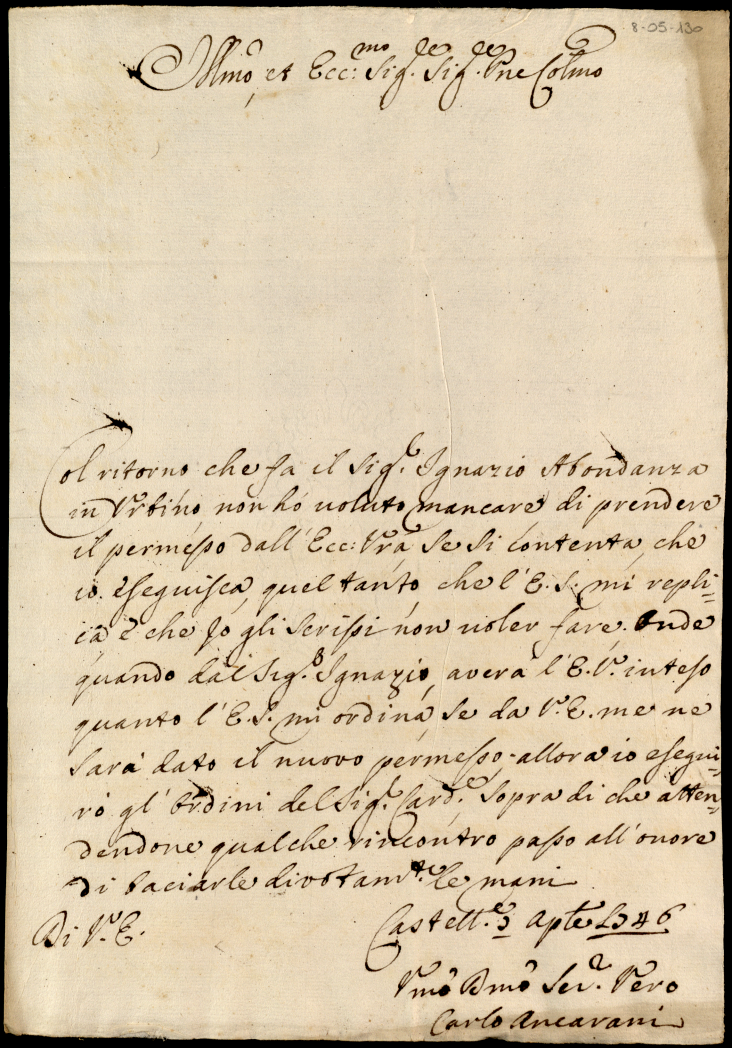 8-05-130
Illmo et Ecc:mo Sig.re Sig.re Pne Colmo
Col ritorno che fa il Sig.r Ignazio Abondanza
in Urbino non hó voluto mancare di prendere
il permesso dall'Ecc: Vra se si contenta, che
io eseguisca, quel tanto che l'E. S. mi repli=
ca e che Io gli scrissi non voler fare. Onde
quando dal Sig.r Ignazio, averá l'E. V.a inteso
quanto l'E. S. mi ordina, se da V.E. me ne
sará dato il nuovo permesso, allora io esegui=
ró gl'ordini del Sig.r Card.e Sopra di che atten=
dendone qualche rincontro passo all'onore
di baciarle divotam.te le mani
Di V.a E.
Castell.e 3 Aple 1746
Umo Dmo Ser.e Vero
Carlo Ancarani